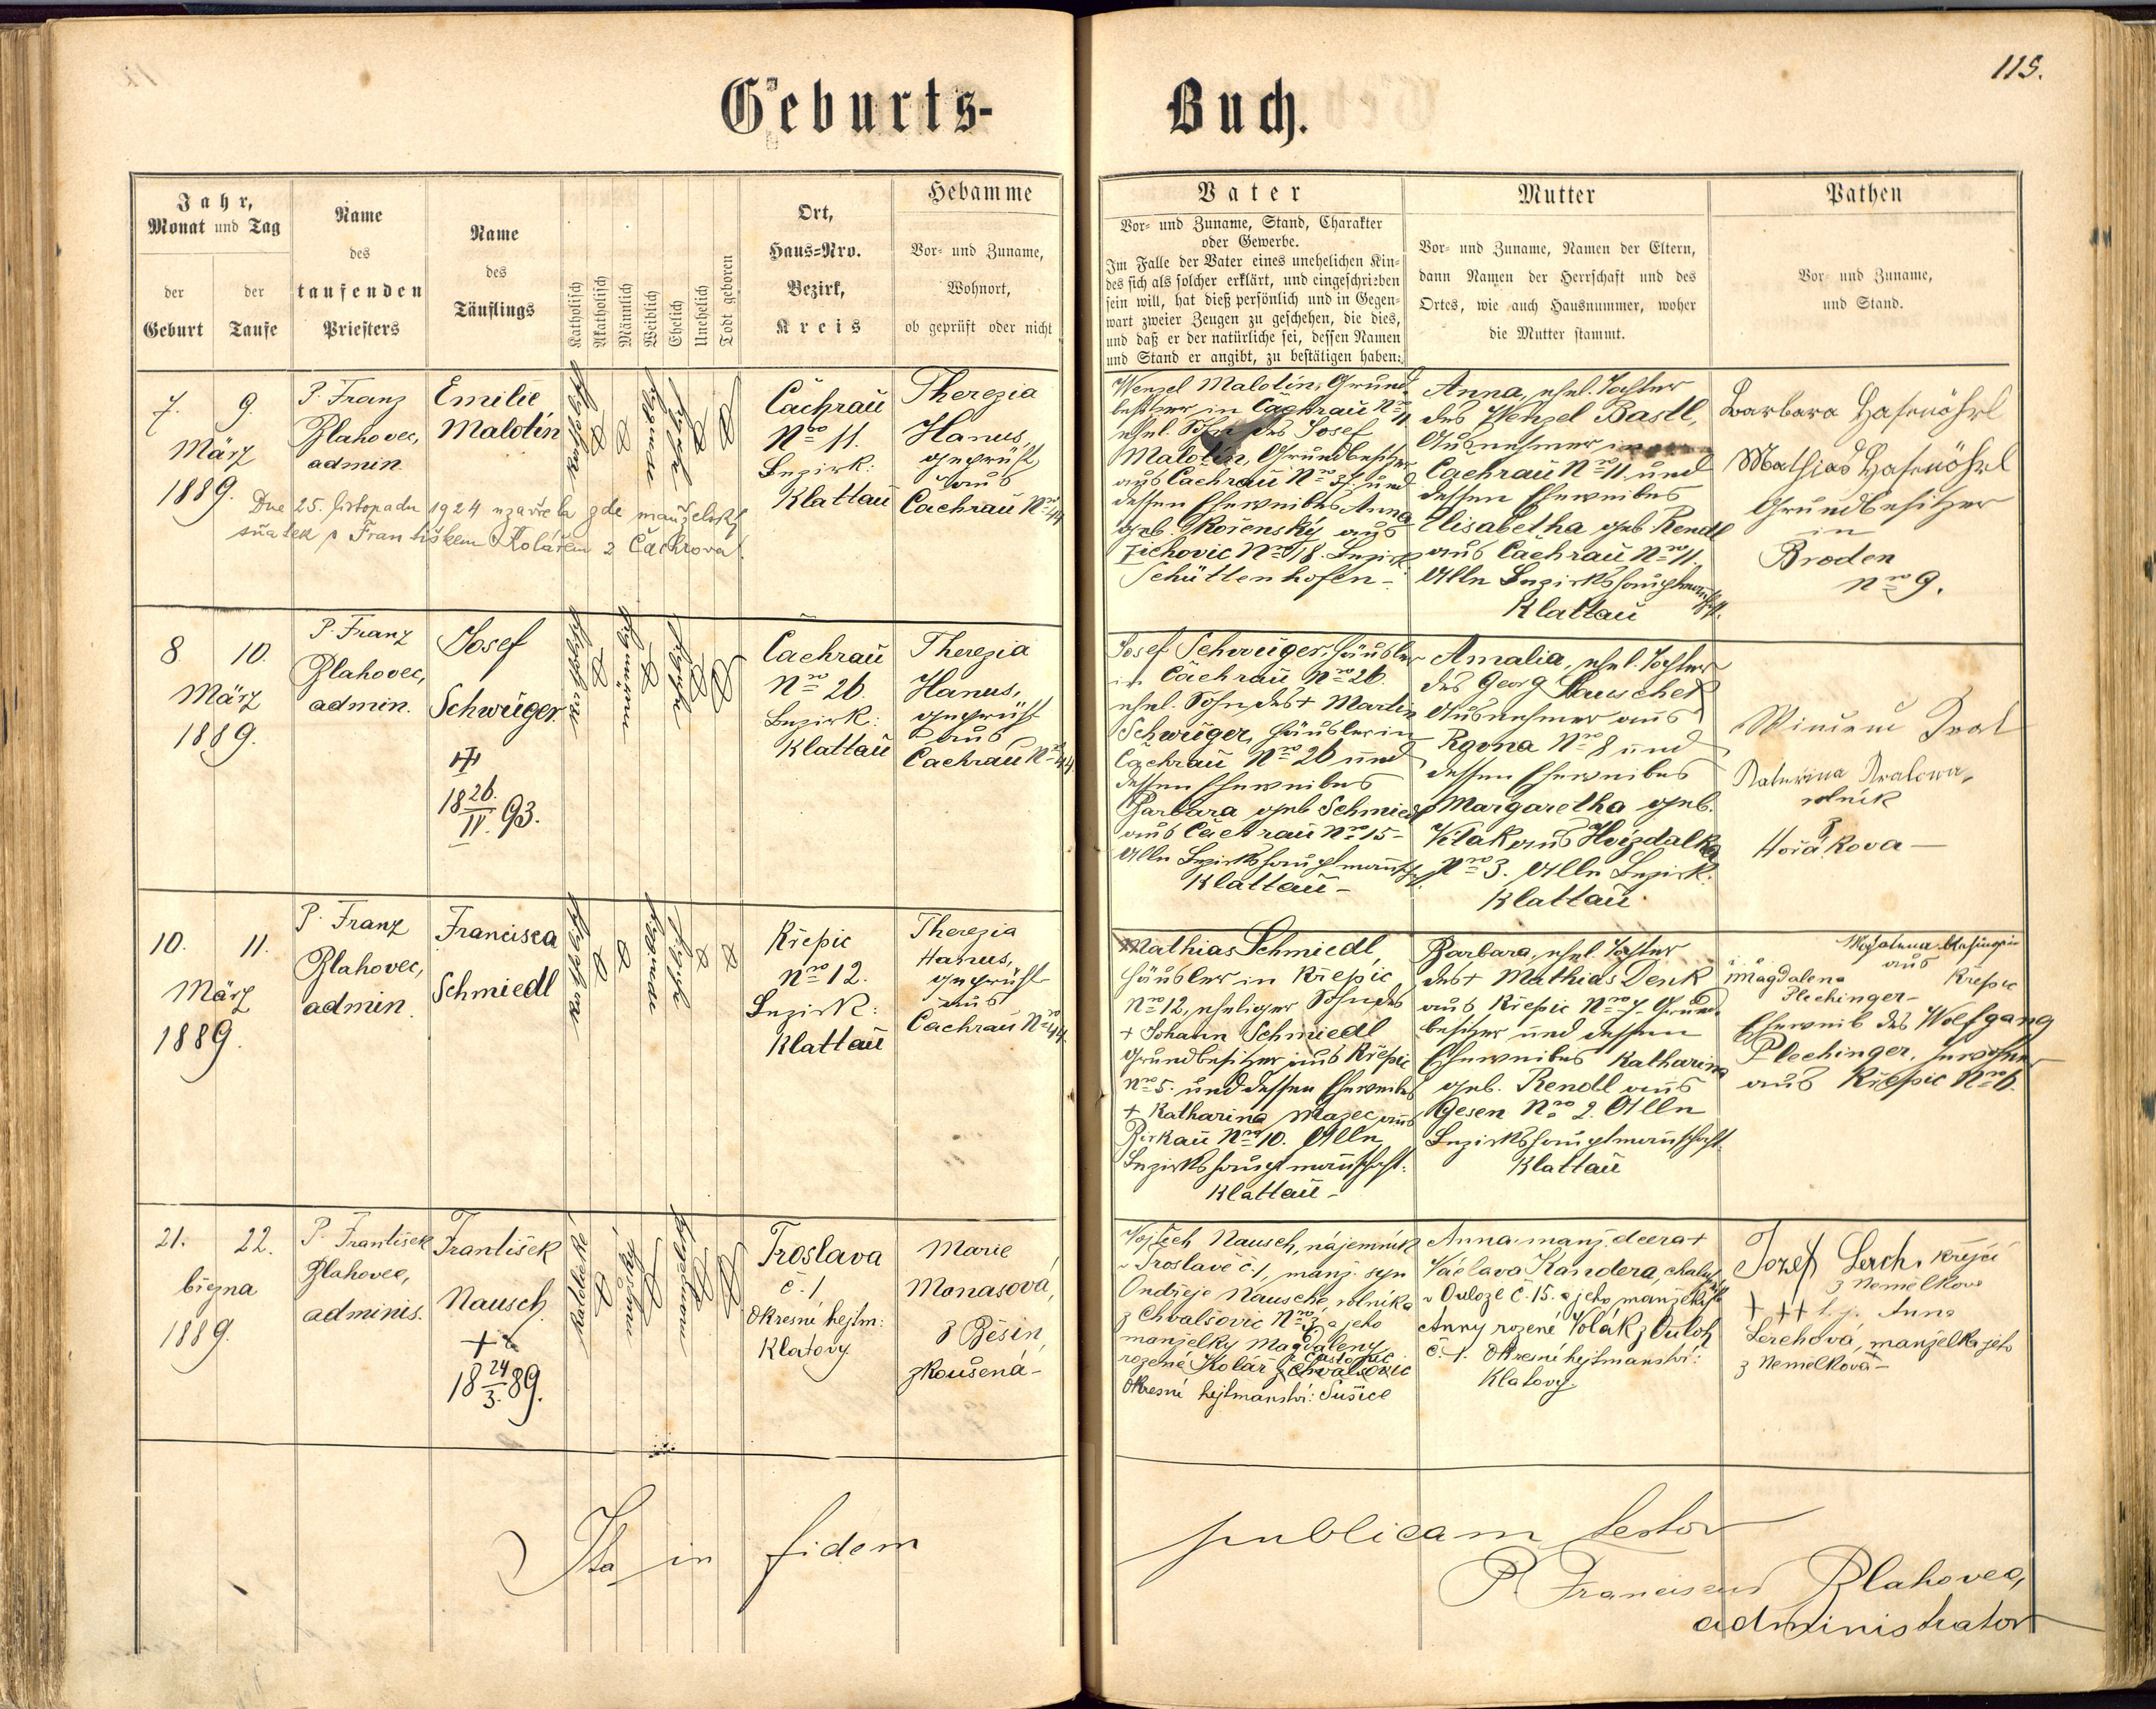 115.
Geburts-
Buch.
Jahr,
Monat und Tag
der
Geburt
der
Taufe
Name
des
taufenden
Priesters
Name
des
Täuflings
Katholisch
Akatholisch
Männlich
Weiblich
Ehelich
Unehelich
Todt geboren
Ort,
Haus-Nro.
Bezirk,
Kreis
Hebamme
Vor- und Zuname,
Wohnort,
ob geprüft oder nicht
Vater
Vor- und Zuname, Stand, Charakter
oder Gewerbe.
Im Falle der Vater eines unehelichen Kin-
des sich als solcher erklärt, und eingeschrieben
sein will, hat dieß persönlich und in Gegen-
wart zweier Zeugen zu geschehen, die dies,
und daß er der natürliche sei, dessen Namen
und Stand er angibt, zu bestätigen haben:
Mutter
Vor- und Zuname, Namen der Eltern,
dann Namen der Herrschaft und des
Ortes, wie auch Hausnummer, woher
die Mutter stammt.
Pathen
Vor- und Zuname,
und Stand.
7. 9.
März
1889.
P. Franz
Blahovec,
admin.
Emilie
Malotin
katholisch
weiblich
ehelich
Čachrau
Nro 11.
Bezirk:
Klattau
Therezia
Hanus,
geprüft
aus
Cachrau Nro 44
Dne 25. listopadu 1924 uzavřela zde manželský
sňatek s Františkem Kolářem z Čachrova.
Wenzel Malotin, Grund-
besitzer in Čachrau Nro 11
ehel. Sohn des Josef
Malotin, Grundbesitzer
aus Čachrau Nro 37. und
dessen Eheweibes Anna
geb. Kořenský aus
Zichovic Nro 18. Bezirk
Schüttenhofen-
Anna, ehel. Tochter
des Wenzel Bastl,
Ausnehmer in
Cachrau Nro 11. und
dessen Eheweibes
Elisabetha geb Rendl
aus Cachrau Nro 11.
Alle Bezirkshauptmannschft.
Klattau
Barbara Hasenöhrl
Mathias Hasenöhrl
Grundbesitzer
in
Broden
Nro 9.
8. 10.
März
1889.
P. Franz
Blahovec,
admin.
Josef
Schwüger
1826./II.93.
katholisch
männlich
ehelich
Čachrau
Nro 26.
Bezirk:
Klattau
Therezia
Hanus,
geprüft
aus
Cachrau Nro 44
Josef Schwüger, Häusler
in Čachrau Nro 26.
ehel. Sohn des + Martin
Schwüger, Häusler in
Čachrau Nro 26 und
dessen Eheweibes
Barbara geb Schmiedl
aus Čachrau Nro 15-
Alle Bezirkshauptmannschft.
Klattau-
Amalia, ehel. Tochter
des Georg Pauschek
Ausnehmer aus
Nro 8 und
dessen Eheweibes
Margaretha geb.
aus
Nro 3. Alle Bezirk:
Klattau
rolník
z
Hořakova-
10. 11.
März
1889.
P. Franz
Blahovec,
admin.
Francisca
Schmiedl
katholisch
weiblich
ehelich
Křepic
Nro 12.
Bezirk:
Klattau
Therezia
Hanus,
geprüft
aus
Cachrau Nro 44
Mathias Schmiedl,
Häusler in Křepic
Nro 12, ehelicher Sohn des
+ Johann Schmiedl
Grundbesitzer aus Křepic
Nro 5. und dessen Eheweibes
+ Katharina Mazec aus
Birkau Nro 10. Alle
Bezirkshauptmannschaft:
Klattau-
Barbara, ehel. Tochter
des + Mathias Denk
aus Křepic Nro 7. Grund-
besitzer und dessen
Eheweibes Katharina
geb. Rendl aus
Gesen Nro 2. Alle
Bezirkshauptmannschaft.
Klattau
aus
Magdalena Křepic
Plechinger-
Eheweib des Wolfgang
Plechinger, Inwohner
aus Křepic Nro 6.
21. 22.
března
1889.
P. František
Blahovec,
adminis.
František
Nausch
+
1824/3.89.
katolické
manželské
Troslava
č. 1
Okresní hejtm:
Klatovy
Marie
Monasová,
z Běšin,
zkoušená-
Vojtěch Nausch, nájemník
v Troslavě č. 1, manž. syn
Ondřeje Nausche, rolníka
z Chvalšovic Nro 3 a jeho
manželky Magdaleny
rozené Kolář z Častonic
Chvalšovic
Okresní hejtmanství: Sušice
Anna, manž. dcera +
Václava Kandera, chalupníka
v Ouloze č. 15. a jeho manželky
Anny rozené Volák z Ouloh
č. 1. Okresní hejtmanství:
Klatovy.
Jozef Lerch, krejčí
z Nemelkova
+++ t.j. Anna
Lerchová, manželka jeho
z Nemelkova-
Ita in fidem publicam testor
P. Franciscus Blahovec,
administrator